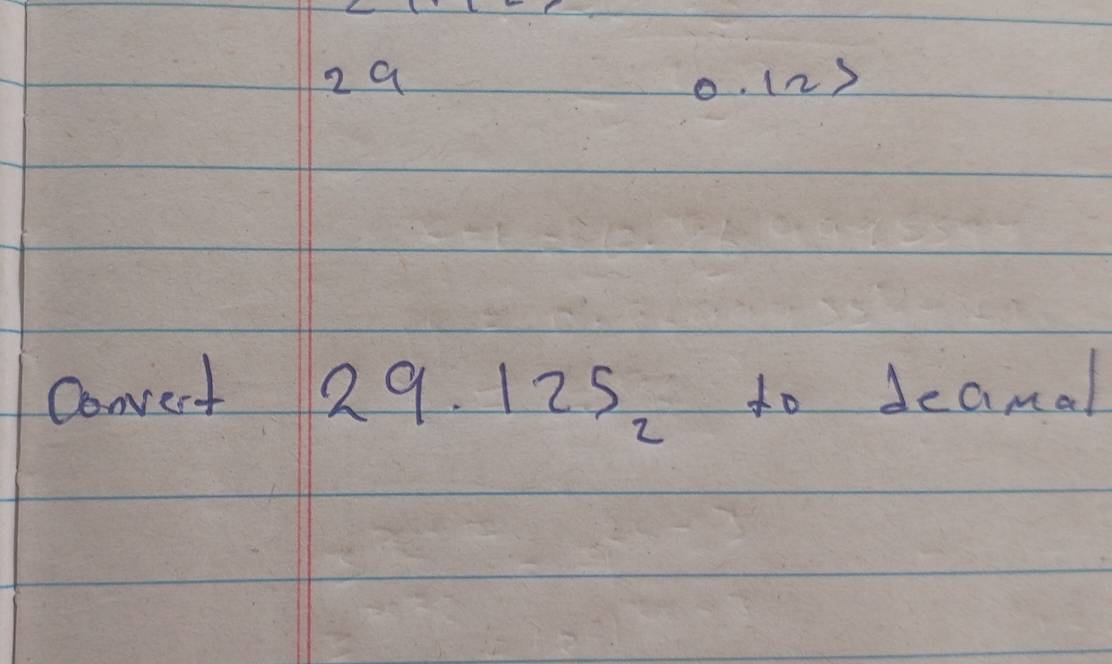 29 0.125
Convert 29.125₂ to decimal